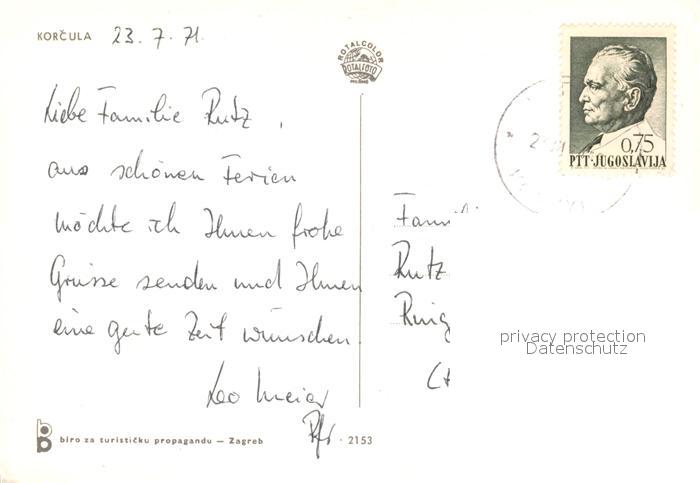 KORČULA 23.7.71.
ROTALCOLOR
ROTALFOTO
Liebe Familie Rutz,
aus schönen Ferien
möchte ich Ihnen frohe
Grüsse senden und Ihnen
eine gute Zeit wünschen.
Leo Meier
Pfr.
biro za turističku propagandu — Zagreb · 2153
0,75
PTT·JUGOSLAVIJA
Fami
Rutz
Ring
privacy protection
Datenschutz